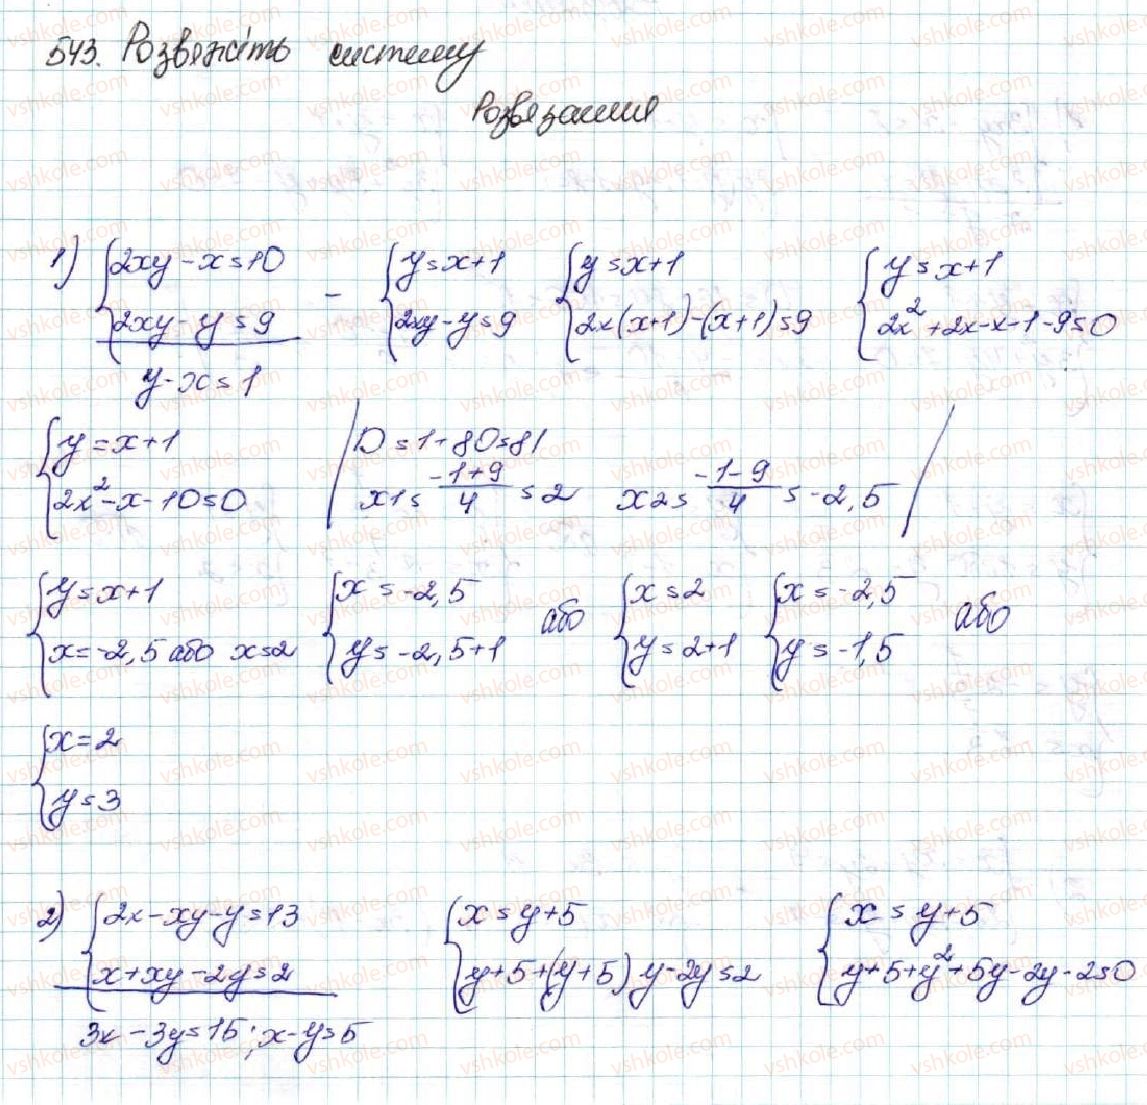 543. Розв'яжіть систему
Розв'язання
1) {2xy - x = 10
2xy - y = 9
y - x = 1
- {y = x + 1
2xy - y = 9
{y = x + 1
2x(x+1) - (x+1) = 9
{y = x + 1
2x² + 2x - x - 1 - 9 = 0
{y = x + 1
2x² - x - 10 = 0
/ D = 1 + 80 = 81
x1 = (-1+9)/4 = 2 x2 = (-1-9)/4 = -2,5 /
{y = x + 1
x = -2,5 або x = 2
{x = -2,5
y = -2,5 + 1
або
{x = 2
y = 2 + 1
{x = -2,5
y = -1,5
або
{x = 2
y = 3
2) {2x - xy - y = 13
x + xy - 2y = 2
3x - 3y = 15; x - y = 5
{x = y + 5
y + 5 + (y + 5) y - 2y = 2
{x = y + 5
y + 5 + y² + 5y - 2y - 2 = 0
vshkole.com